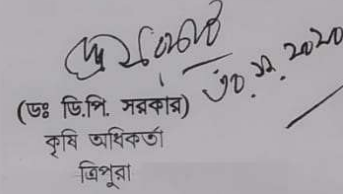 ৩০.১২.২০২০
(ডঃ ডি.পি. সরকার)
কৃষি অধিকর্তা
ত্রিপুরা